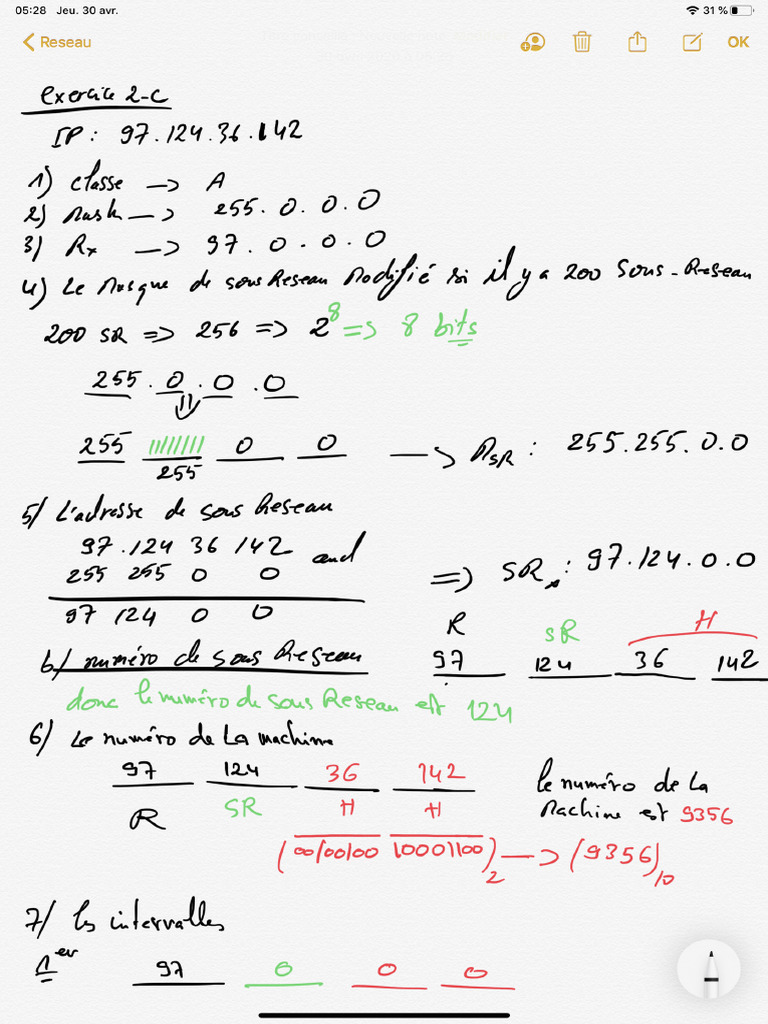 05:28 Jeu. 30 avr. 31 %
Reseau OK
Exercice 2-c
IP : 97.124.36.142
1) classe → A
2) Mask → 255.0.0.0
3) Rx → 97.0.0.0
4) Le Masque de sous Reseau Modifié si il y a 200 Sous-Reseau
200 SR => 256 => 2^8 => 8 bits
255 . 0 . 0 . 0
255 11111111 0 0 → MSR : 255.255.0.0
255
5/ L'adresse de sous Reseau
97 . 124 36 142 and
255 255 0 0 => SRx : 97.124.0.0
97 124 0 0
R SR H
6/ numéro de sous Reseau 97 124 36 142
donc le numéro de sous Reseau est 124
6/ Le numéro de La machine
97 124 36 142 le numéro de La
R SR H H Machine est 9356
(00100100 10001100)2 → (9356)10
7/ les intervalles
1er 97 0 0 0